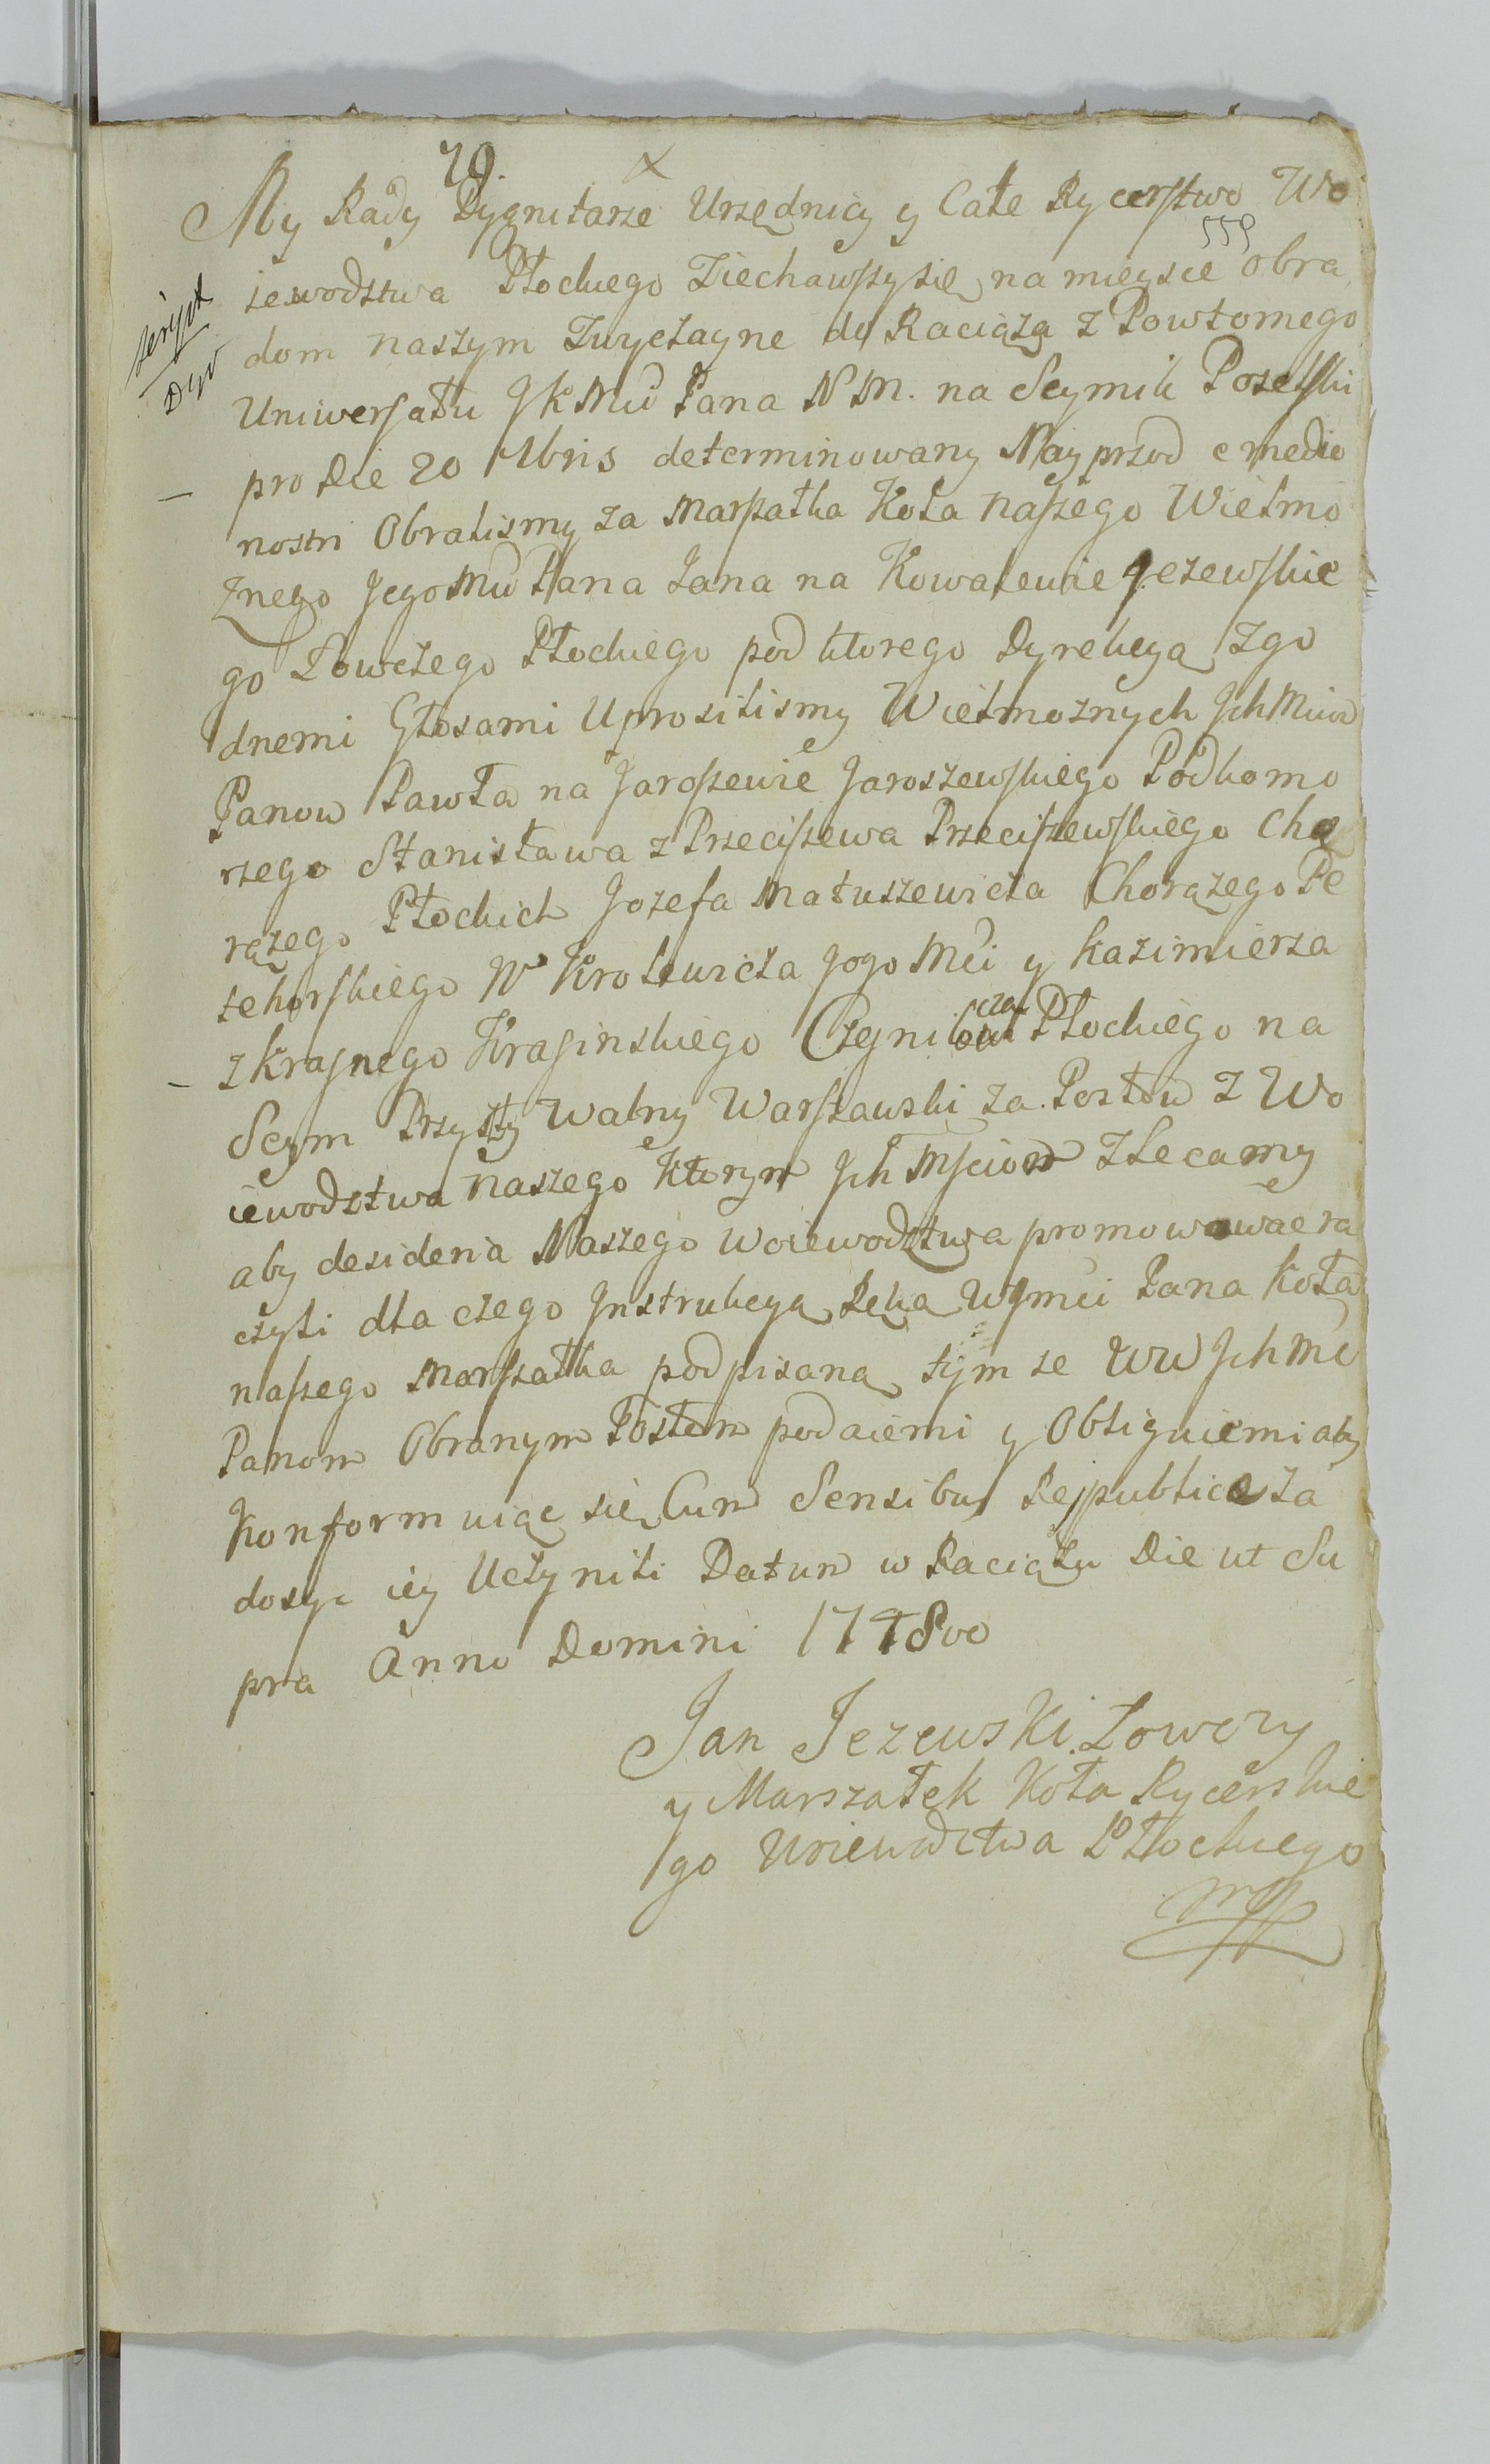 79.
My Rady Dygnitarze Urzędnicy y Całe Rycerstwo Wo
559
iewodztwa Płockiego Ziechawszy się na mieysce obra
dom naszym Zwyczayne do Raciąża z Powtornego
Uniwersału JKMci Pana N M. na Seymik Poselski
pro Die 20 Mbris determinowany Nayprzod e medio
nostri Obralismy za Marszałka Koła naszego Wielmo
żnego JegoMci Pana Jana na Kowalewie Jezewskie
go Łowczego Płockiego pod ktorego Dyrekcyą Zgo
dnemi Głosami Uprosilismy Wielmoznych JchMciow
Panow Pawła na Jaroszewie Jaroszewskiego Podkomo
rzego Stanisława z Przeciszewa Przeciszewskiego Cho
rązego Płockich Jozefa Matuszewicza Chorązego Pe
tehorskiego Kròlewicza JegoMci y Kazimierza
z Krasnego Krasinskiego Czesnikowicza Płockiego na
Seym Przyszły Walny Warszawski za Posłow z Wo
iewodztwa naszego Ktorym JchMsciom Zlecamy
aby desideria Naszego Woiewodztwa promowowac ra
czyli dla czego Jnstrukcyą Ręką WJmci Pana Koła
naszego Marszałka podpisaną tym ze WW JchMc
Panom Obranym Posłom podaiemi y Obliguiemi aby
Konformuiąc się Cum Sensibus Reipublicae za
dosyc iey Uczynili Datum w Raciążu Die ut Su
pra Anno Domini 1748vo
Jan Jezewski Łowczy
y Marszałek Koła Rycerskie
go Woiewodztwa Płockiego
mp